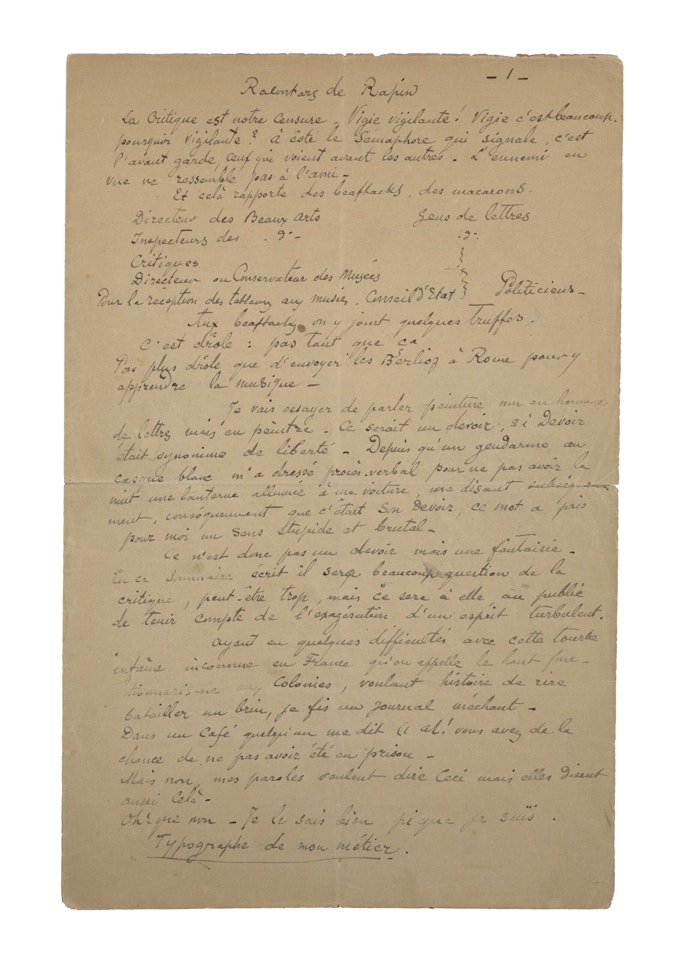 - 1 -
Racontars de Rapin
La Critique est notre censure. Vigie vigilante! Vigie c'est beaucoup.
pourquoi vigilante? à côté le Sémaphore qui signale, c'est
l'avant garde, ceux qui voient avant les autres. L'ennemi en
vue ne ressemble pas à l'ami -
Et celà rapporte des beaftacks, des macarons.
Directeur des Beaux Arts Gens de lettres
Inspecteurs des . d°- . d°.
Critiques
Directeur ou Conservateur des Musées
Pour la reception des tableaux aux musées. Conseil D'Etat Politiciens -
Aux beaftacks on y joint quelques truffes.
C'est drôle : pas tant que ça
Pas plus drôle que d'envoyer les Berlioz à Rome pour y
apprendre la musique -
Je vais essayer de parler peinture non en homme
de lettres mais en peintre. Ce serait un devoir, si Devoir
était synonime de liberté - Depuis qu'un gendarme en
casque blanc m'a dressé procès-verbal pour ne pas avoir la
nuit une lanterne allumée à ma voiture, me disant
ment, conséquemment que c'était Son Devoir, ce mot a pris
pour moi un sens stupide et brutal -
Ce n'est donc pas un devoir mais une fantaisie -
En ce sommaire écrit il sera beaucoup question de la
critique, peut-être trop, mais ce sera à elle au public
de tenir compte de l'exagération d'un esprit turbulent.
Ayant eu quelques difficultés avec cette tourbe
infâme inconnue en France qu'on appelle le haut fonc-
tionnarisme aux Colonies, voulant histoire de rire
batailler un brin, je fis un journal méchant -
Dans un Café quelqu'un me dit " et! vous avez de la
chance de ne pas avoir été en prison -
Mais non, mes paroles veulent dire Ceci mais elles disent
aussi Celà -
Oh! que non - Je le sais bien puisque je suis
Typographe de mon métier.